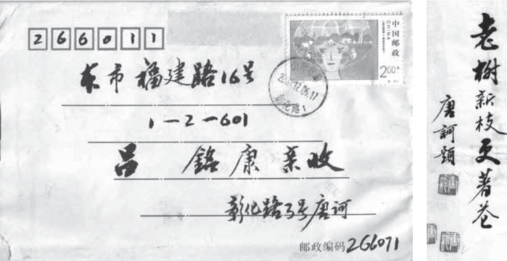 266011
中国邮政
2.60元
本市福建路16号
1-2-601
吕铭康亲收
彰化路3号唐诃
邮政编码266071
老树新枝更著花
唐诃题